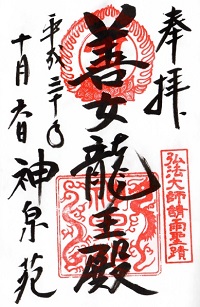 奉拝
弘法大師請雨聖蹟
善女龍王殿
平成三十年
十月六日
神泉苑